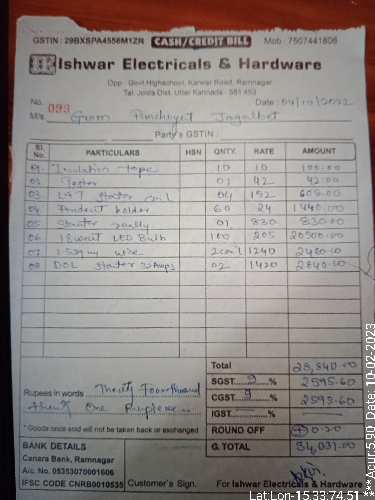 GSTIN : 29BXSPA4556M1ZR CASH/CREDIT BILL Mob : 7507441806
Ishwar Electricals & Hardware
Opp : Govt Highschool, Karwar Road, Ramnagar
Tal. Joida Dist. Uttar Kannada - 581 453
No. 093 Date : 04/10/2022
M/s Gram Panchayat Jagalbet
Party's GSTIN :
Sl. No. PARTICULARS HSN QNTY. RATE AMOUNT
01 Insulation tape 10 10 100.00
02 Tester 01 42 42.00
03 L&T Starter coil 04 152 608.00
04 Pendent holder 60 24 1440.00
05 Starter really 01 830 830.00
06 18 watt LED Bulb 100 205 20500.00
07 1.5 sqmm wire 2 coil 1240 2480.00
08 DOL Starter 32 Amps 02 1420 2840.00
Total 28,840.00
SGST 9 % 2595.60
Rupees in words Thirty Four thousand CGST 9 % 2595.60
thirty One Rupees IGST %
* Goods once sold will not be taken back or exchanged ROUND OFF (-) 0.20
G. TOTAL 34,031.00
BANK DETAILS
Canara Bank, Ramnagar
A/c No. 05353070001606
IFSC CODE CNRB0010535 Customer's Sign. For Ishwar Electricals & Hardware
Lat:Lon-15.33:74.51 ***Acur:5.90 Date: 10-02-2023